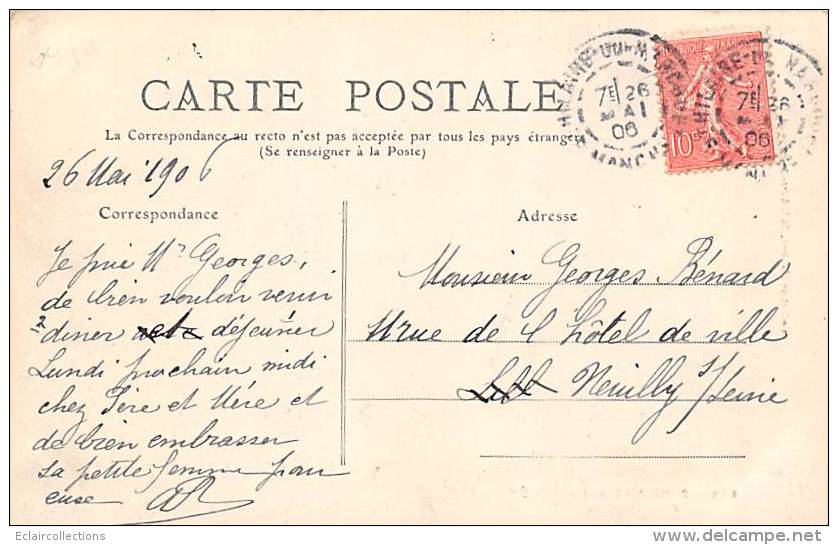 CARTE POSTALE
La Correspondance au recto n'est pas acceptée par tous les pays étrangers
(Se renseigner à la Poste)
26 Mai 1906
Correspondance
Je prie Mr Georges,
de bien vouloir venir
diner déjeuner
Lundi prochain midi
chez Père et Mère et
de bien embrasser
sa petite femme pour
Adresse
Monsieur Georges Bénard
rue de l'hôtel de ville
Neuilly s/Seine
HILAIRE-DU-HARCOUET
MANCHE
7E 26
MAI
06
7E 26
06
10c
Eclaircollections
www.delcampe.net